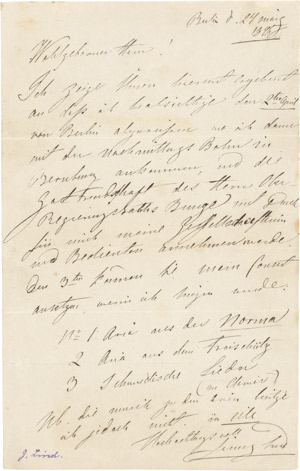 Berlin d. 27 März
Wohlgeborner Herr!
Ich zeige Ihnen hiermit ergebenst
an daß ich beabsichtige den 2ten April
von Berlin abzureisen wo ich dann
mit der Nachmittags Bahn in
Bernburg ankommen, und die
Gastfreundschaft des Herrn Ober
Regierungsraths
für mich meine Gesellschafterin
und Bedienten annehmen werde.
Den 3ten können Sie mein Concert
ansetzen, worin ich singen werde.
No 1 Aria aus der Norma
2 Aria aus dem Freischütz
3 Schwedische Lieder
Nb. die Musik zu den
ich jedoch nicht in
Hochachtungsvoll
Jenny Lind
J. Lind.